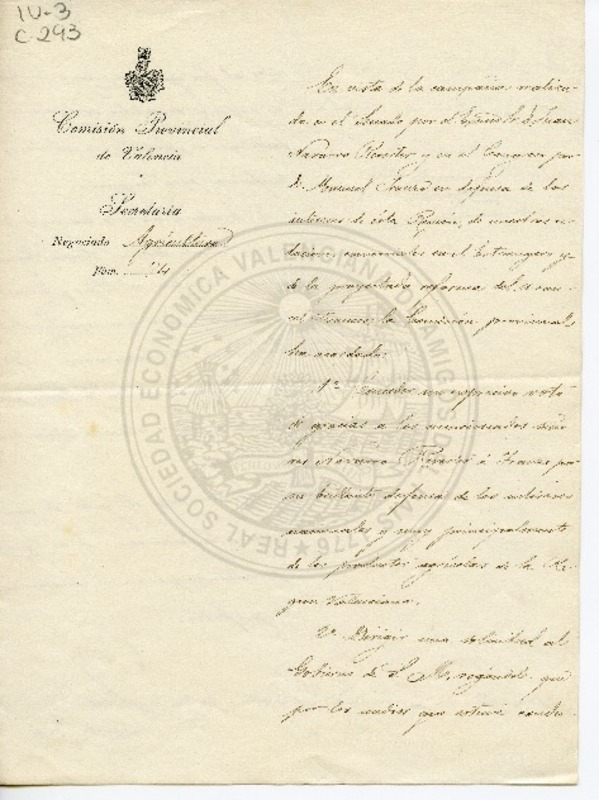 IV-3
C-293
Comisión Provincial
de Valencia
Secretaría
Negociado Agricultura
Núm.
En vista de la campaña realiza-
da en el Senado por el Excmo Sr D. Juan
Navarro Reverter y en el Congreso por
D. Manuel en defensa de los
intereses de esta Región, de nuestras re-
laciones comerciales en el Extranjero y
de la proyectada reforma del aran-
cel francés, la Comisión provincial
ha acordado:
1º Conceder un expresivo voto
de gracias a los mencionados seño-
res Navarro Reverter é por
su brillante defensa de los intereses
nacionales y muy principalmente
de los productos agrícolas de la Re-
gión Valenciana.
2º Dirigir una solicitud al
Gobierno de S. M. rogándole que
por los medios que estime condu-
REAL SOCIEDAD ECONOMICA VALENCIANA DE AMIGOS DEL PAIS
1776